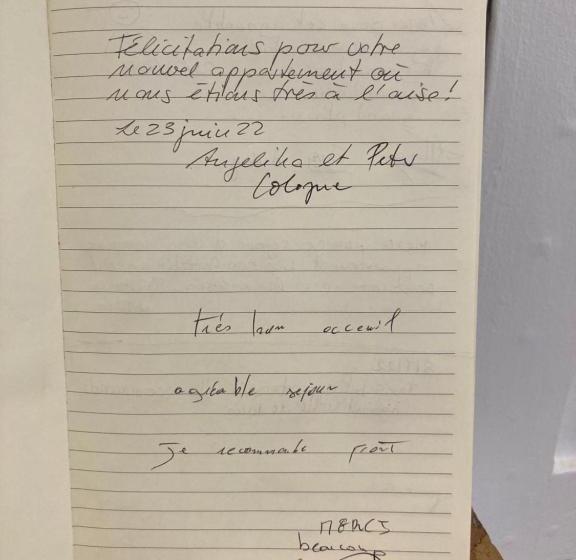 Félicitations pour votre
nouvel appartement où
nous étions très à l'aise!
Le 23 juin 22
Angelika et Peter
Cologne
très bon acceuil
agréable sejour
Je recommande
MERCI
beaucoup